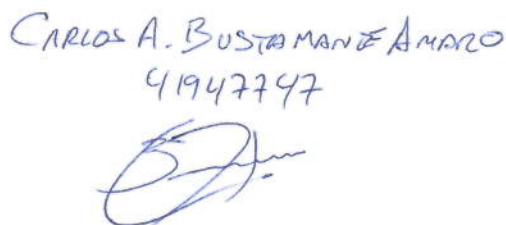 CARLOS A. BUSTAMANTE AMARO
41947747